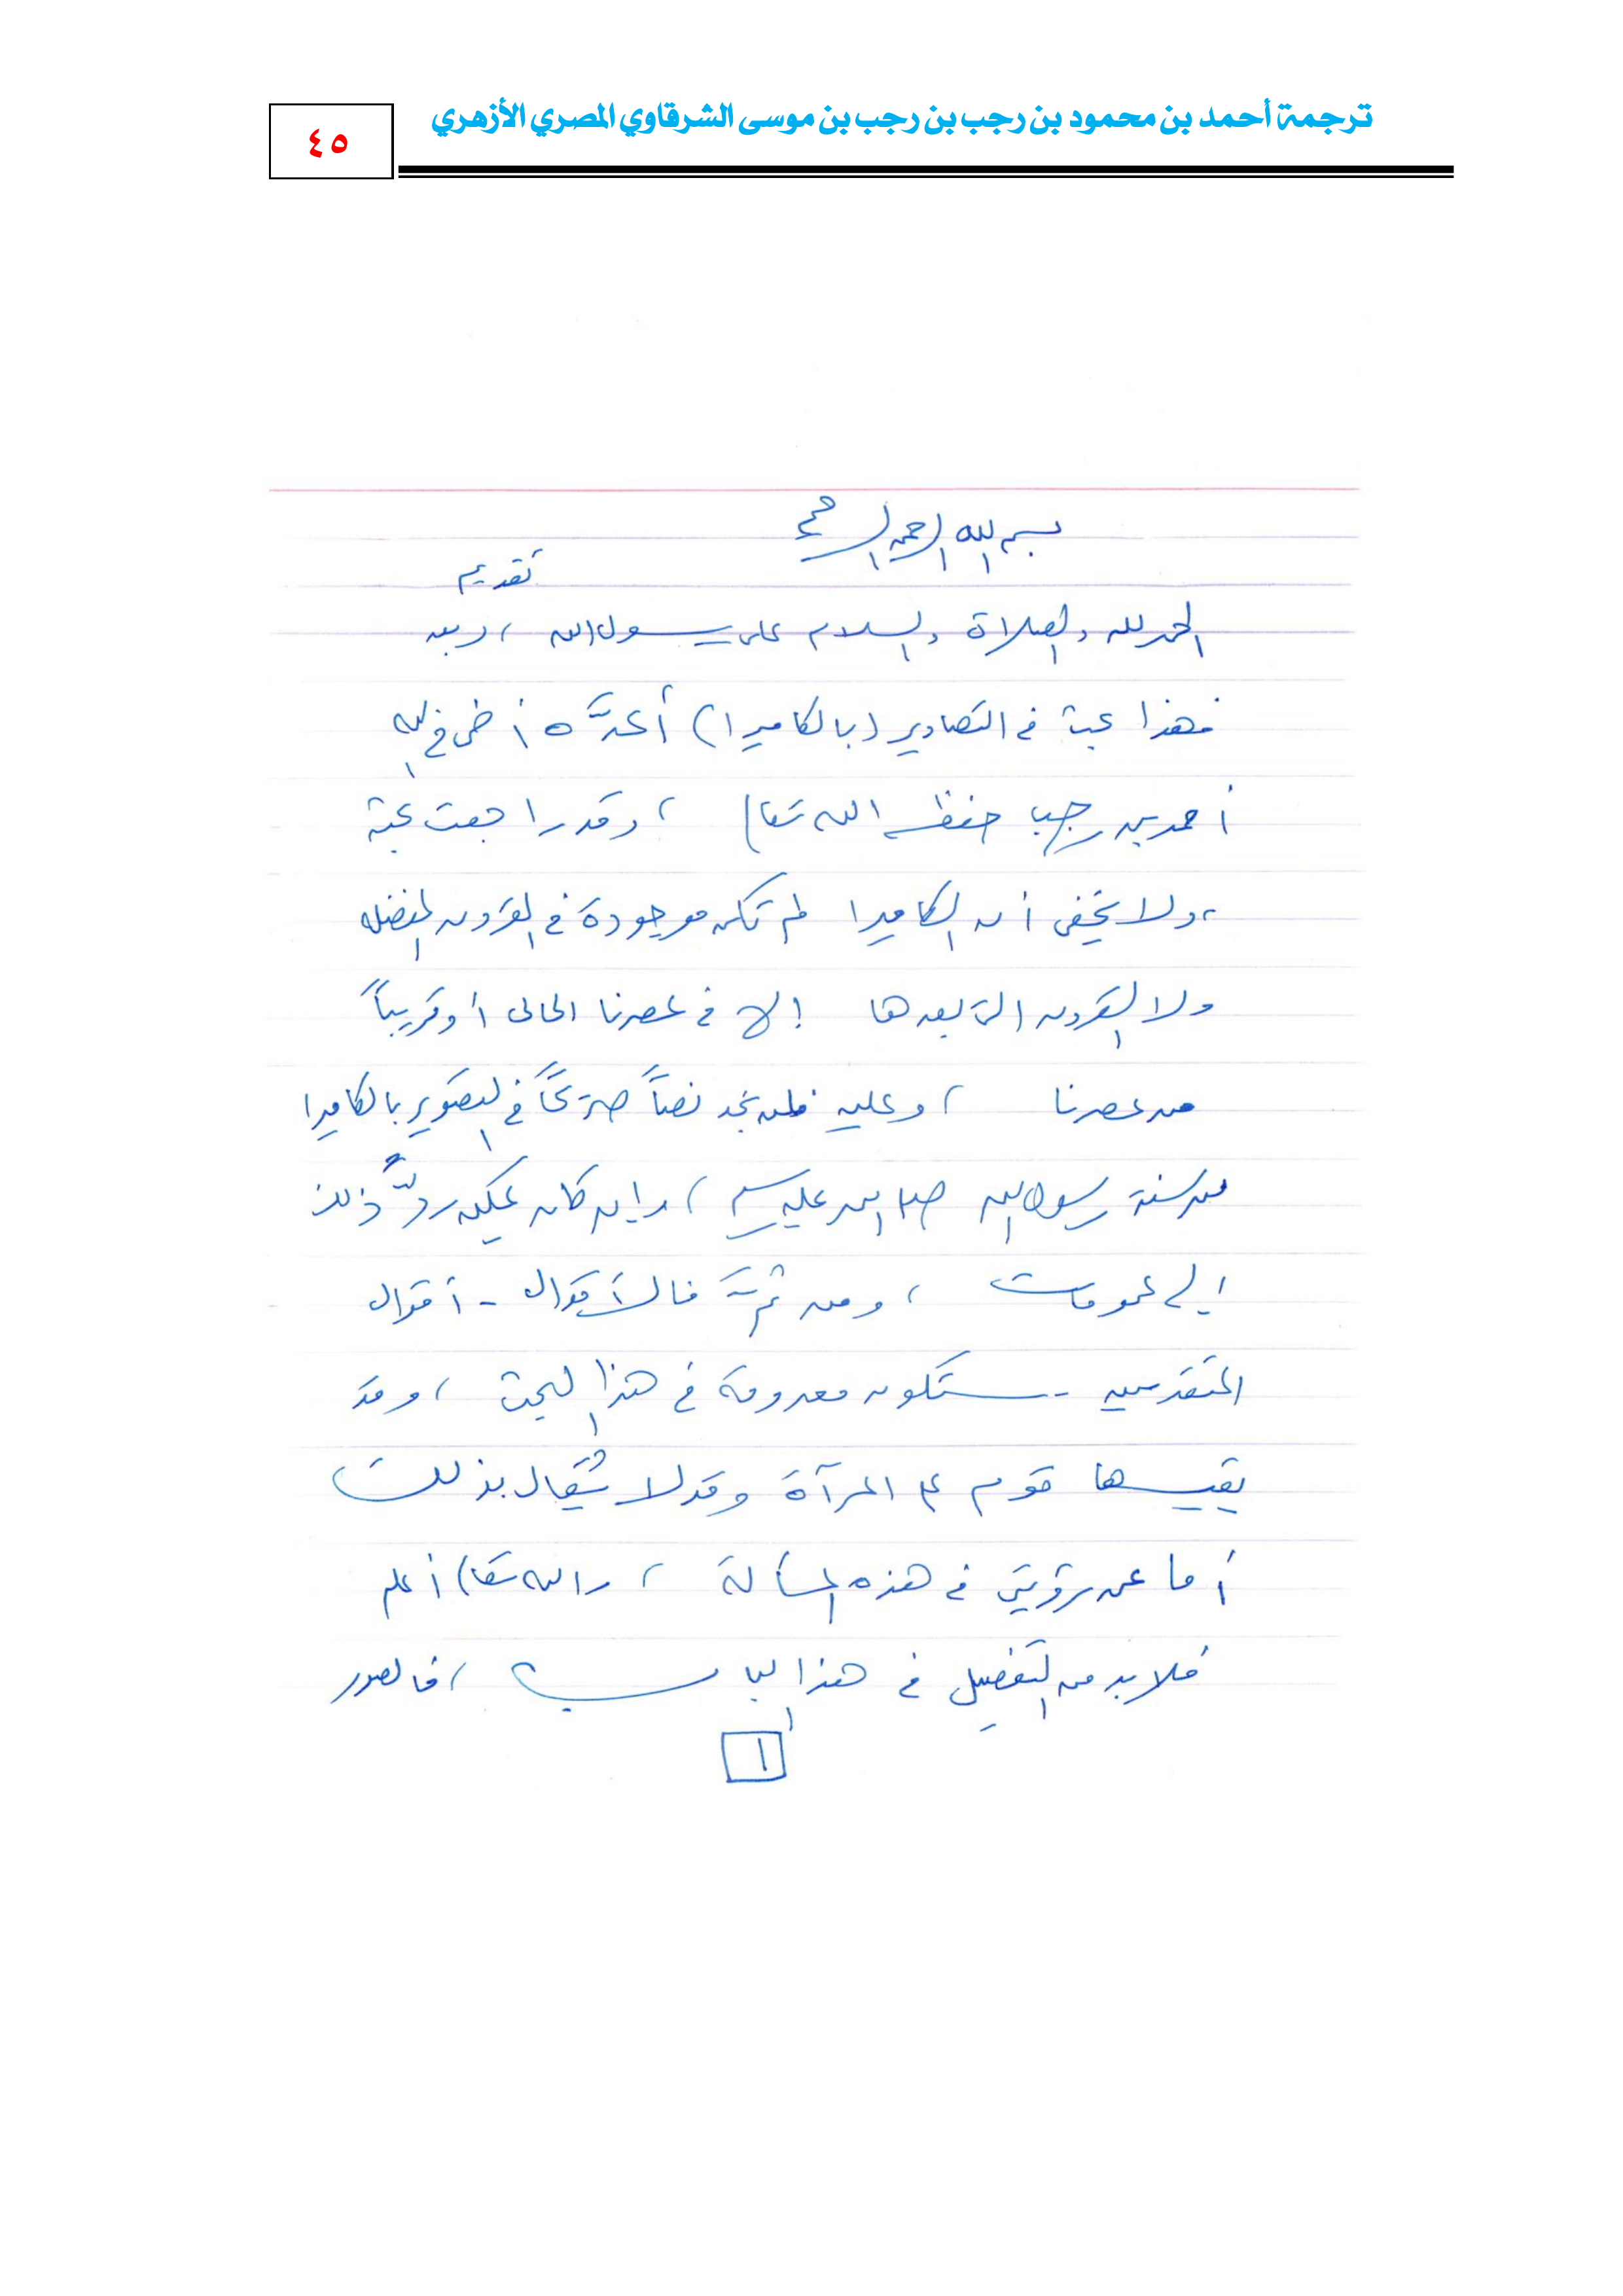 ترجمة أحمد بن محمود بن رجب بن رجب بن موسى الشرقاوي المصري الأزهري
٤٥
بسم الله الرحمن الرحيم
تقديم
الحمد لله والصلاة والسلام على رسول الله ، وبعد
فهذا بحث في التصاوير (بالكاميرا) أعدَّه أخي في الله
أحمد بن رجب حفظه الله تعالى ، وقد راجعت بحثه
، ولا يخفى أن الكاميرا لم تكن موجودة في القرون المفضلة
ولا القرون التي بعدها إلا في عصرنا الحالي أو قريباً
من عصرنا ، وعليه فلن تجد نصاً صريحاً في التصوير بالكاميرا
من سنة رسول الله صلى الله عليه وسلم ، وإن كان يمكن ردُّ ذلك
إلى عمومات ، ومن ثمَّ فالأقوال - أقوال
المتقدمين - ستكون معدومة في هذا البحث ، وقد
يقيسها قوم على المرآة وقد لا يُقال بذلك
أما عن رؤيتي في هذه المسألة ، والله تعالى أعلم
فلابد من التفصيل في هذا الباب ، فالصور
١